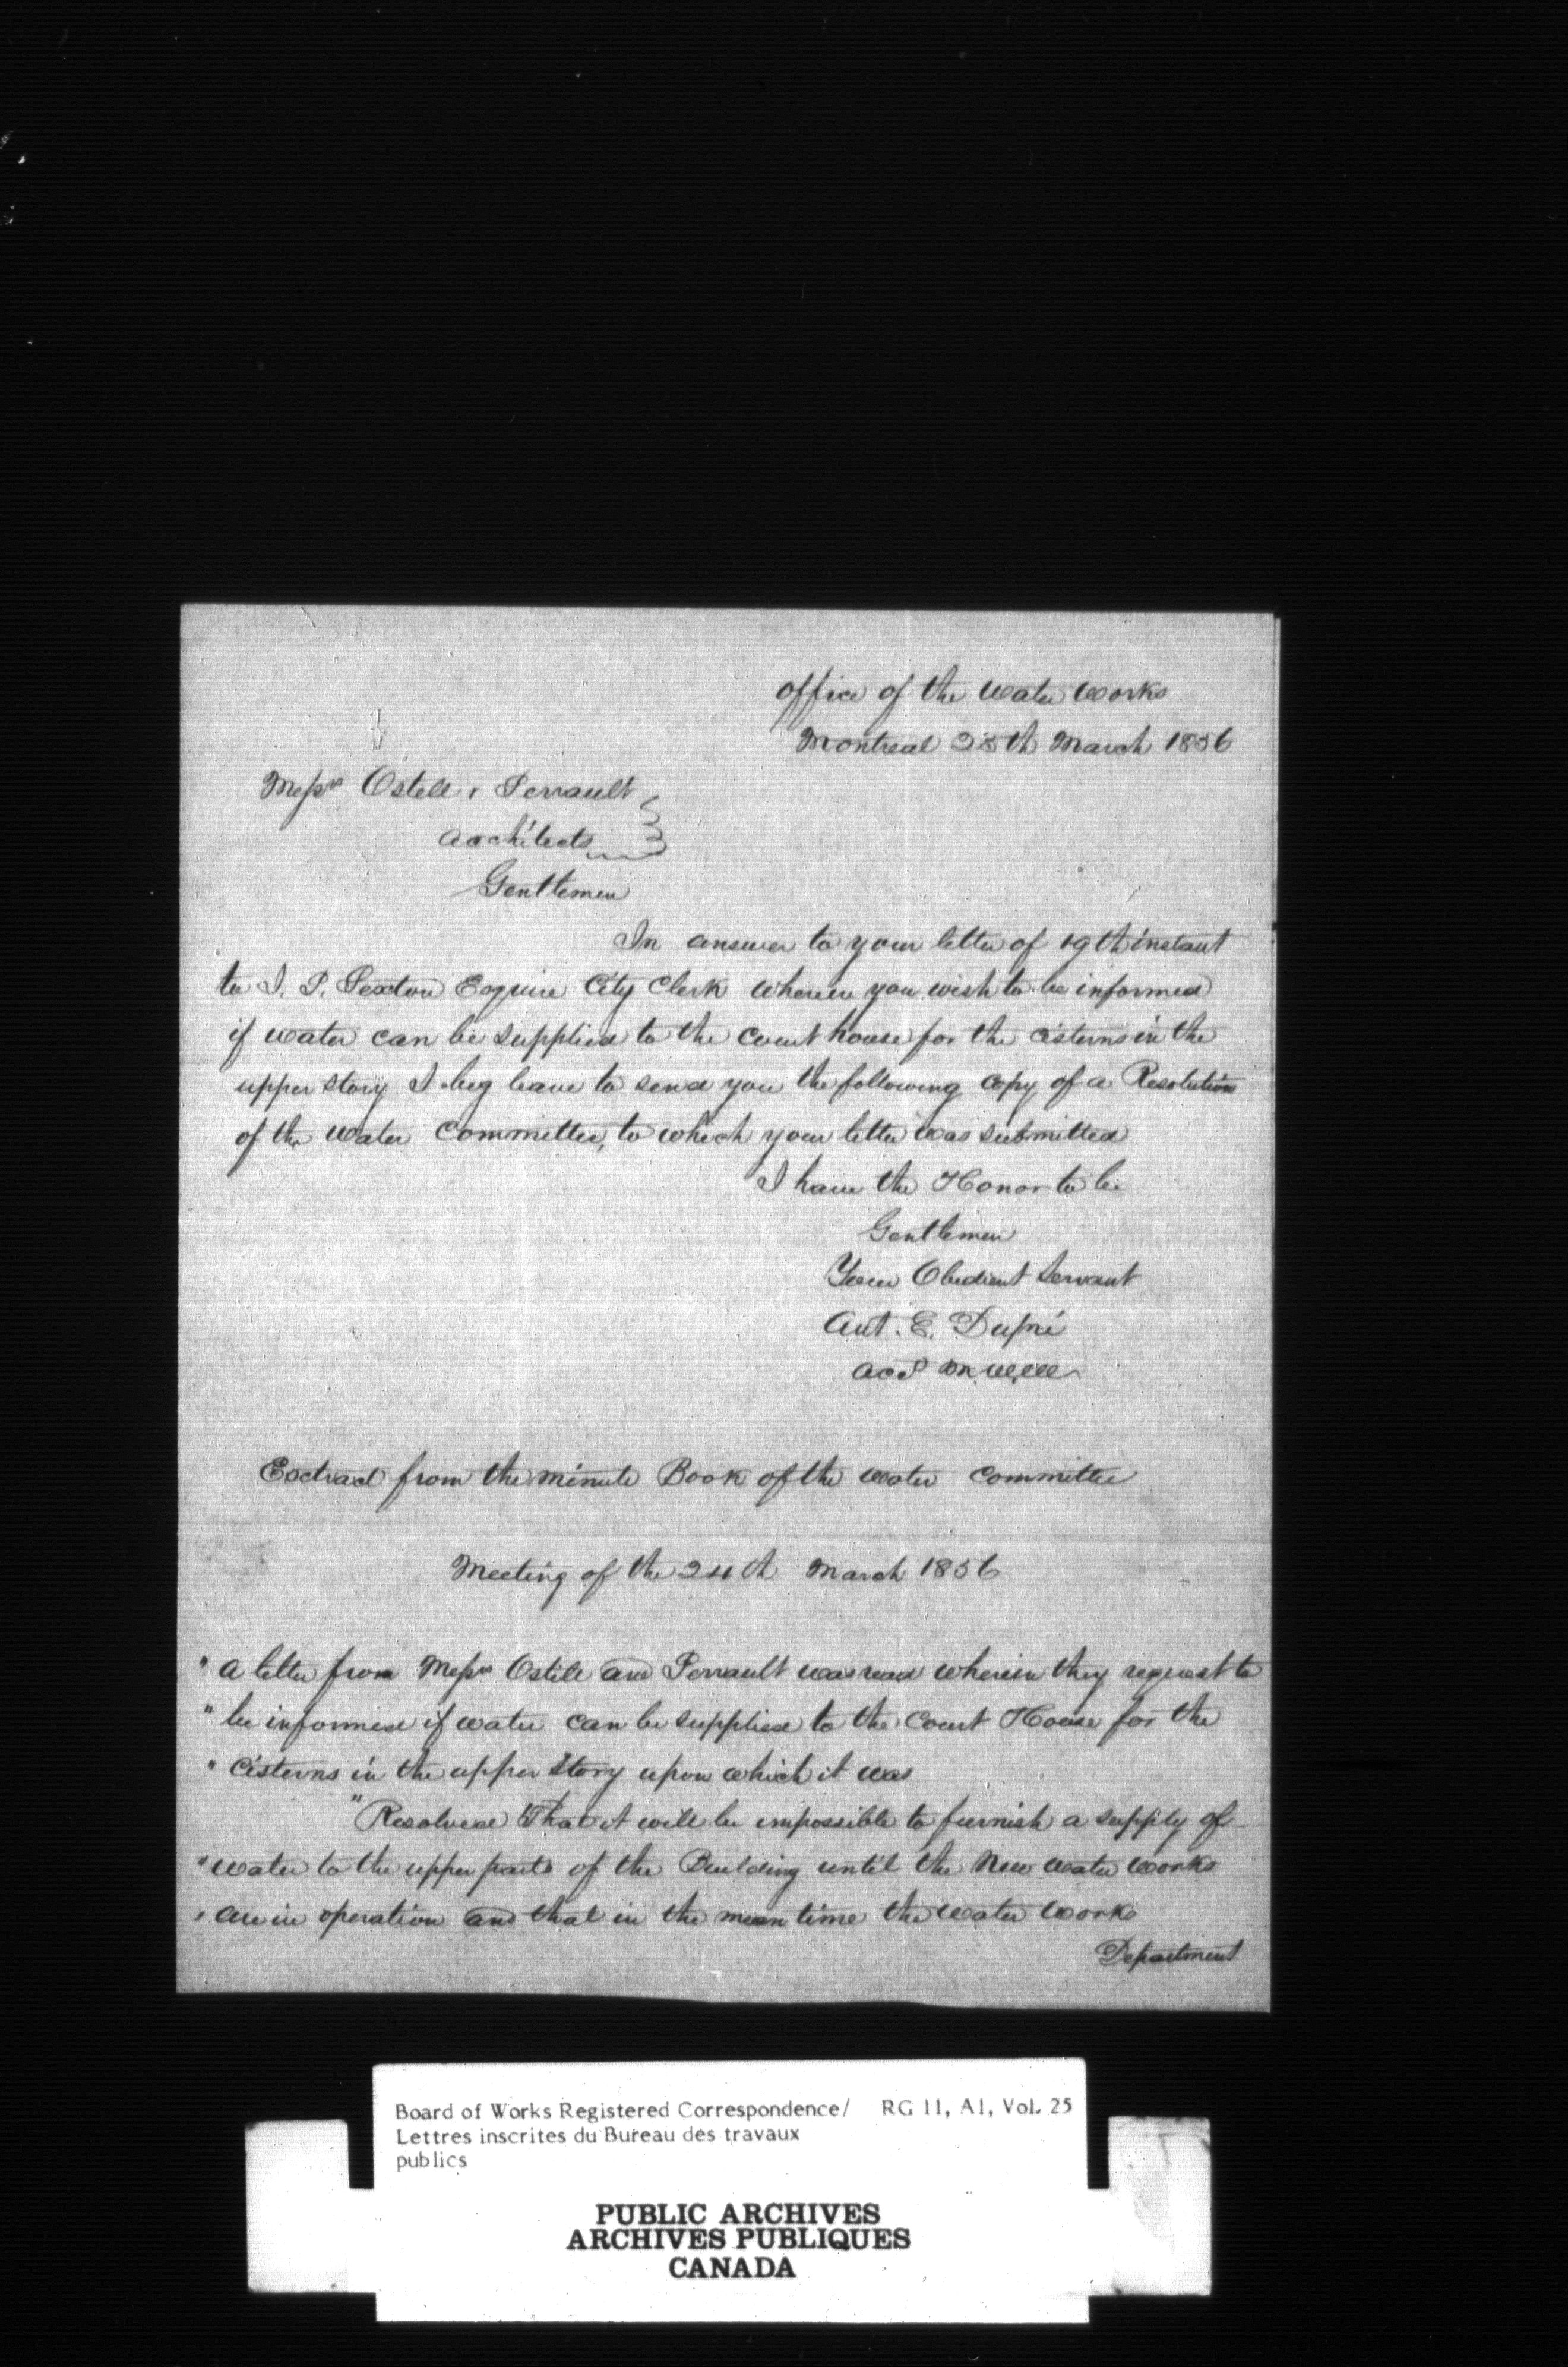 Office of the Water Works
Montreal 28th March 1856
Messrs Ostell & Perrault
Architects
Gentlemen
In answer to your letter of 19th instant
to J. P. Sexton Esquire City Clerk wherein you wish to be informed
if water can be supplied to the Court house for the cisterns in the
upper story I beg leave to send you the following copy of a Resolution
of the Water Committee, to which your letter was submitted
I have the Honor to be
Gentlemen
Your Obedient Servant
Ant. E. Dupré
M.W.W.
Extract from the minute Book of the Water Committee
Meeting of the 24th March 1856
" A letter from Messrs Ostell and Perrault was read wherein they request to
" be informed if water can be supplied to the Court House for the
" Cisterns in the upper Story upon which it was
" Resolved That it will be impossible to furnish a supply of
" water to the upper parts of the Building until the New Water Works
" are in operation and that in the mean time the Water Works
Department
Board of Works Registered Correspondence/ RG 11, A1, Vol. 25
Lettres inscrites du Bureau des travaux
publics
PUBLIC ARCHIVES
ARCHIVES PUBLIQUES
CANADA